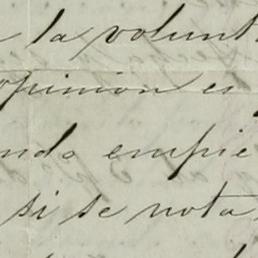 la volunt
opinion es
ndo empie
si se nota